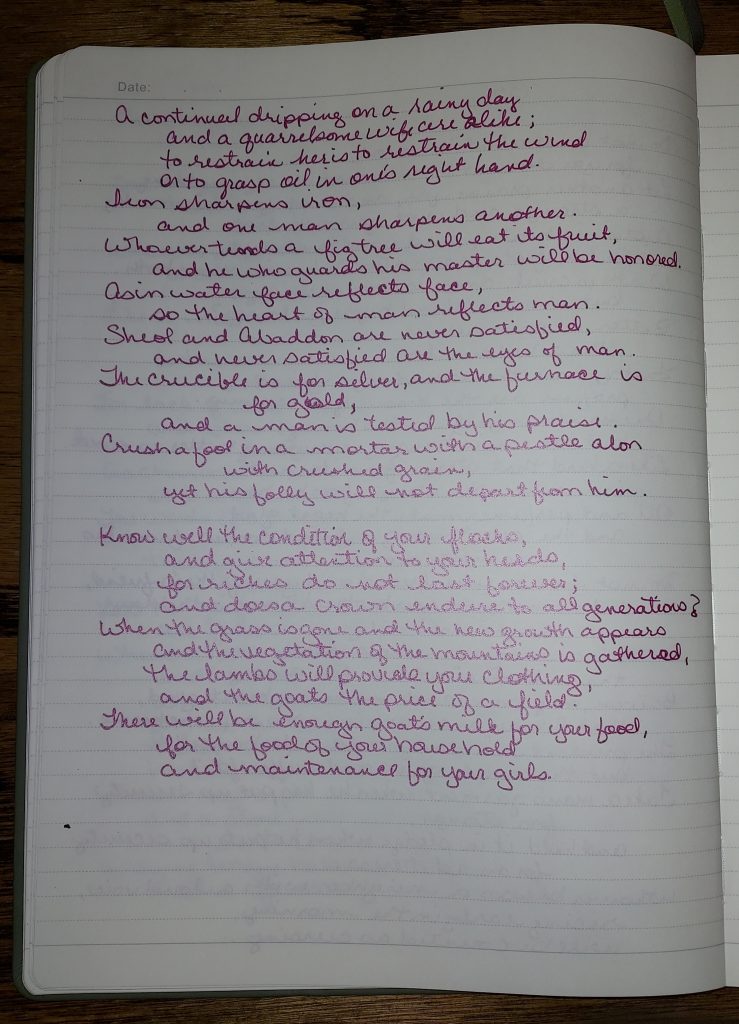 Date:
A continual dripping on a rainy day
and a quarrelsome wife are alike;
to restrain her is to restrain the wind
or to grasp oil in one's right hand.
Iron sharpens iron,
and one man sharpens another.
Whoever tends a fig tree will eat its fruit,
and he who guards his master will be honored.
As in water face reflects face,
so the heart of man reflects man.
Sheol and Abaddon are never satisfied,
and never satisfied are the eyes of man.
The crucible is for silver, and the furnace is
for gold,
and a man is tested by his praise.
Crush a fool in a mortar with a pestle alon
with crushed grain,
yet his folly will not depart from him.
Know well the condition of your flocks,
and give attention to your herds,
for riches do not last forever;
and does a crown endure to all generations?
When the grass is gone and the new growth appears
and the vegetation of the mountains is gathered,
the lambs will provide your clothing,
and the goats the price of a field.
There will be enough goat's milk for your food,
for the food of your household
and maintenance for your girls.